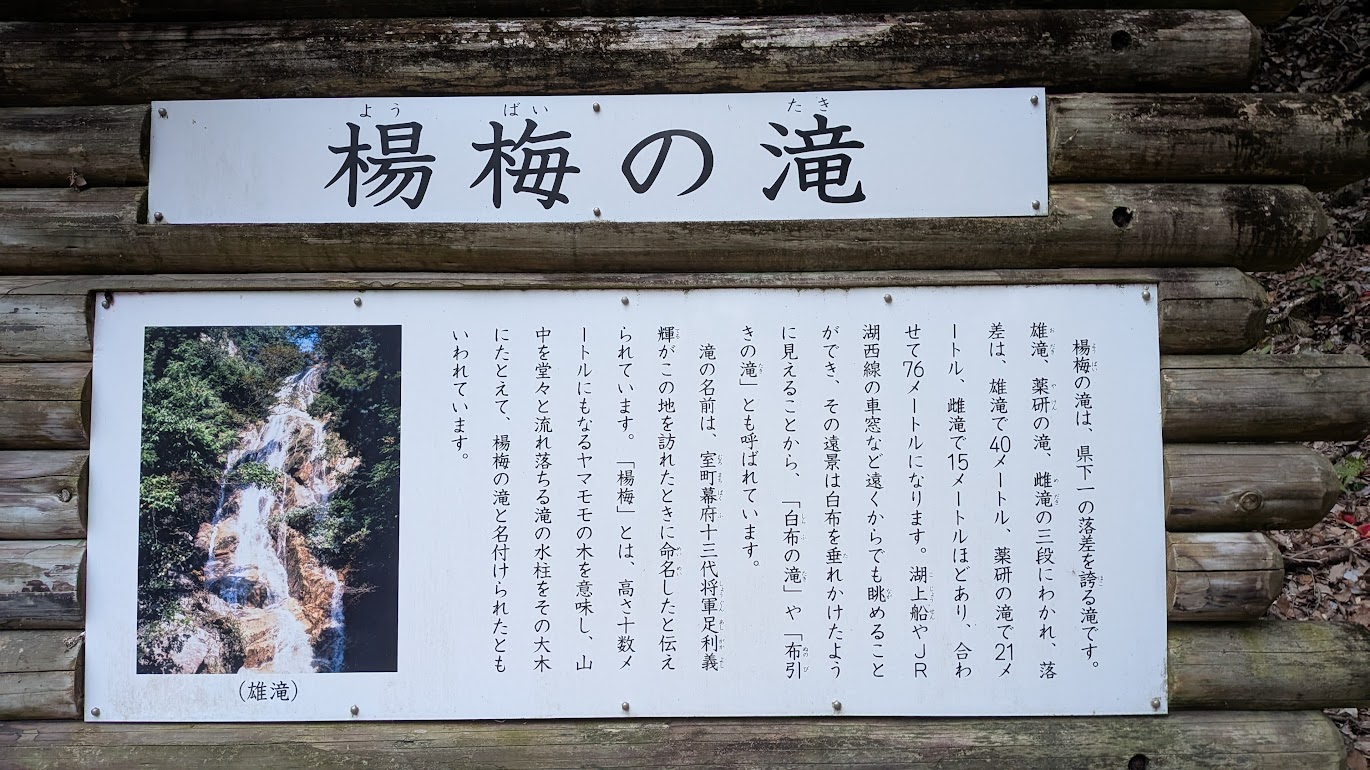 楊梅の滝
楊梅の滝は、県下一の落差を誇る滝です。
雄滝、薬研の滝、雌滝の三段にわかれ、落
差は、雄滝で40メートル、薬研の滝で21メ
ートル、雌滝で15メートルほどあり、合わ
せて76メートルになります。湖上船やJR
湖西線の車窓など遠くからでも眺めること
ができ、その遠景は白布を垂れかけたよう
に見えることから、「白布の滝」や「布引
きの滝」とも呼ばれています。
滝の名前は、室町幕府十三代将軍足利義
輝がこの地を訪れたときに命名したと伝え
られています。「楊梅」とは、高さ十数メ
ートルにもなるヤマモモの木を意味し、山
中を堂々と流れ落ちる滝の水柱をその大木
にたとえて、楊梅の滝と名付けられたとも
いわれています。
(雄滝)